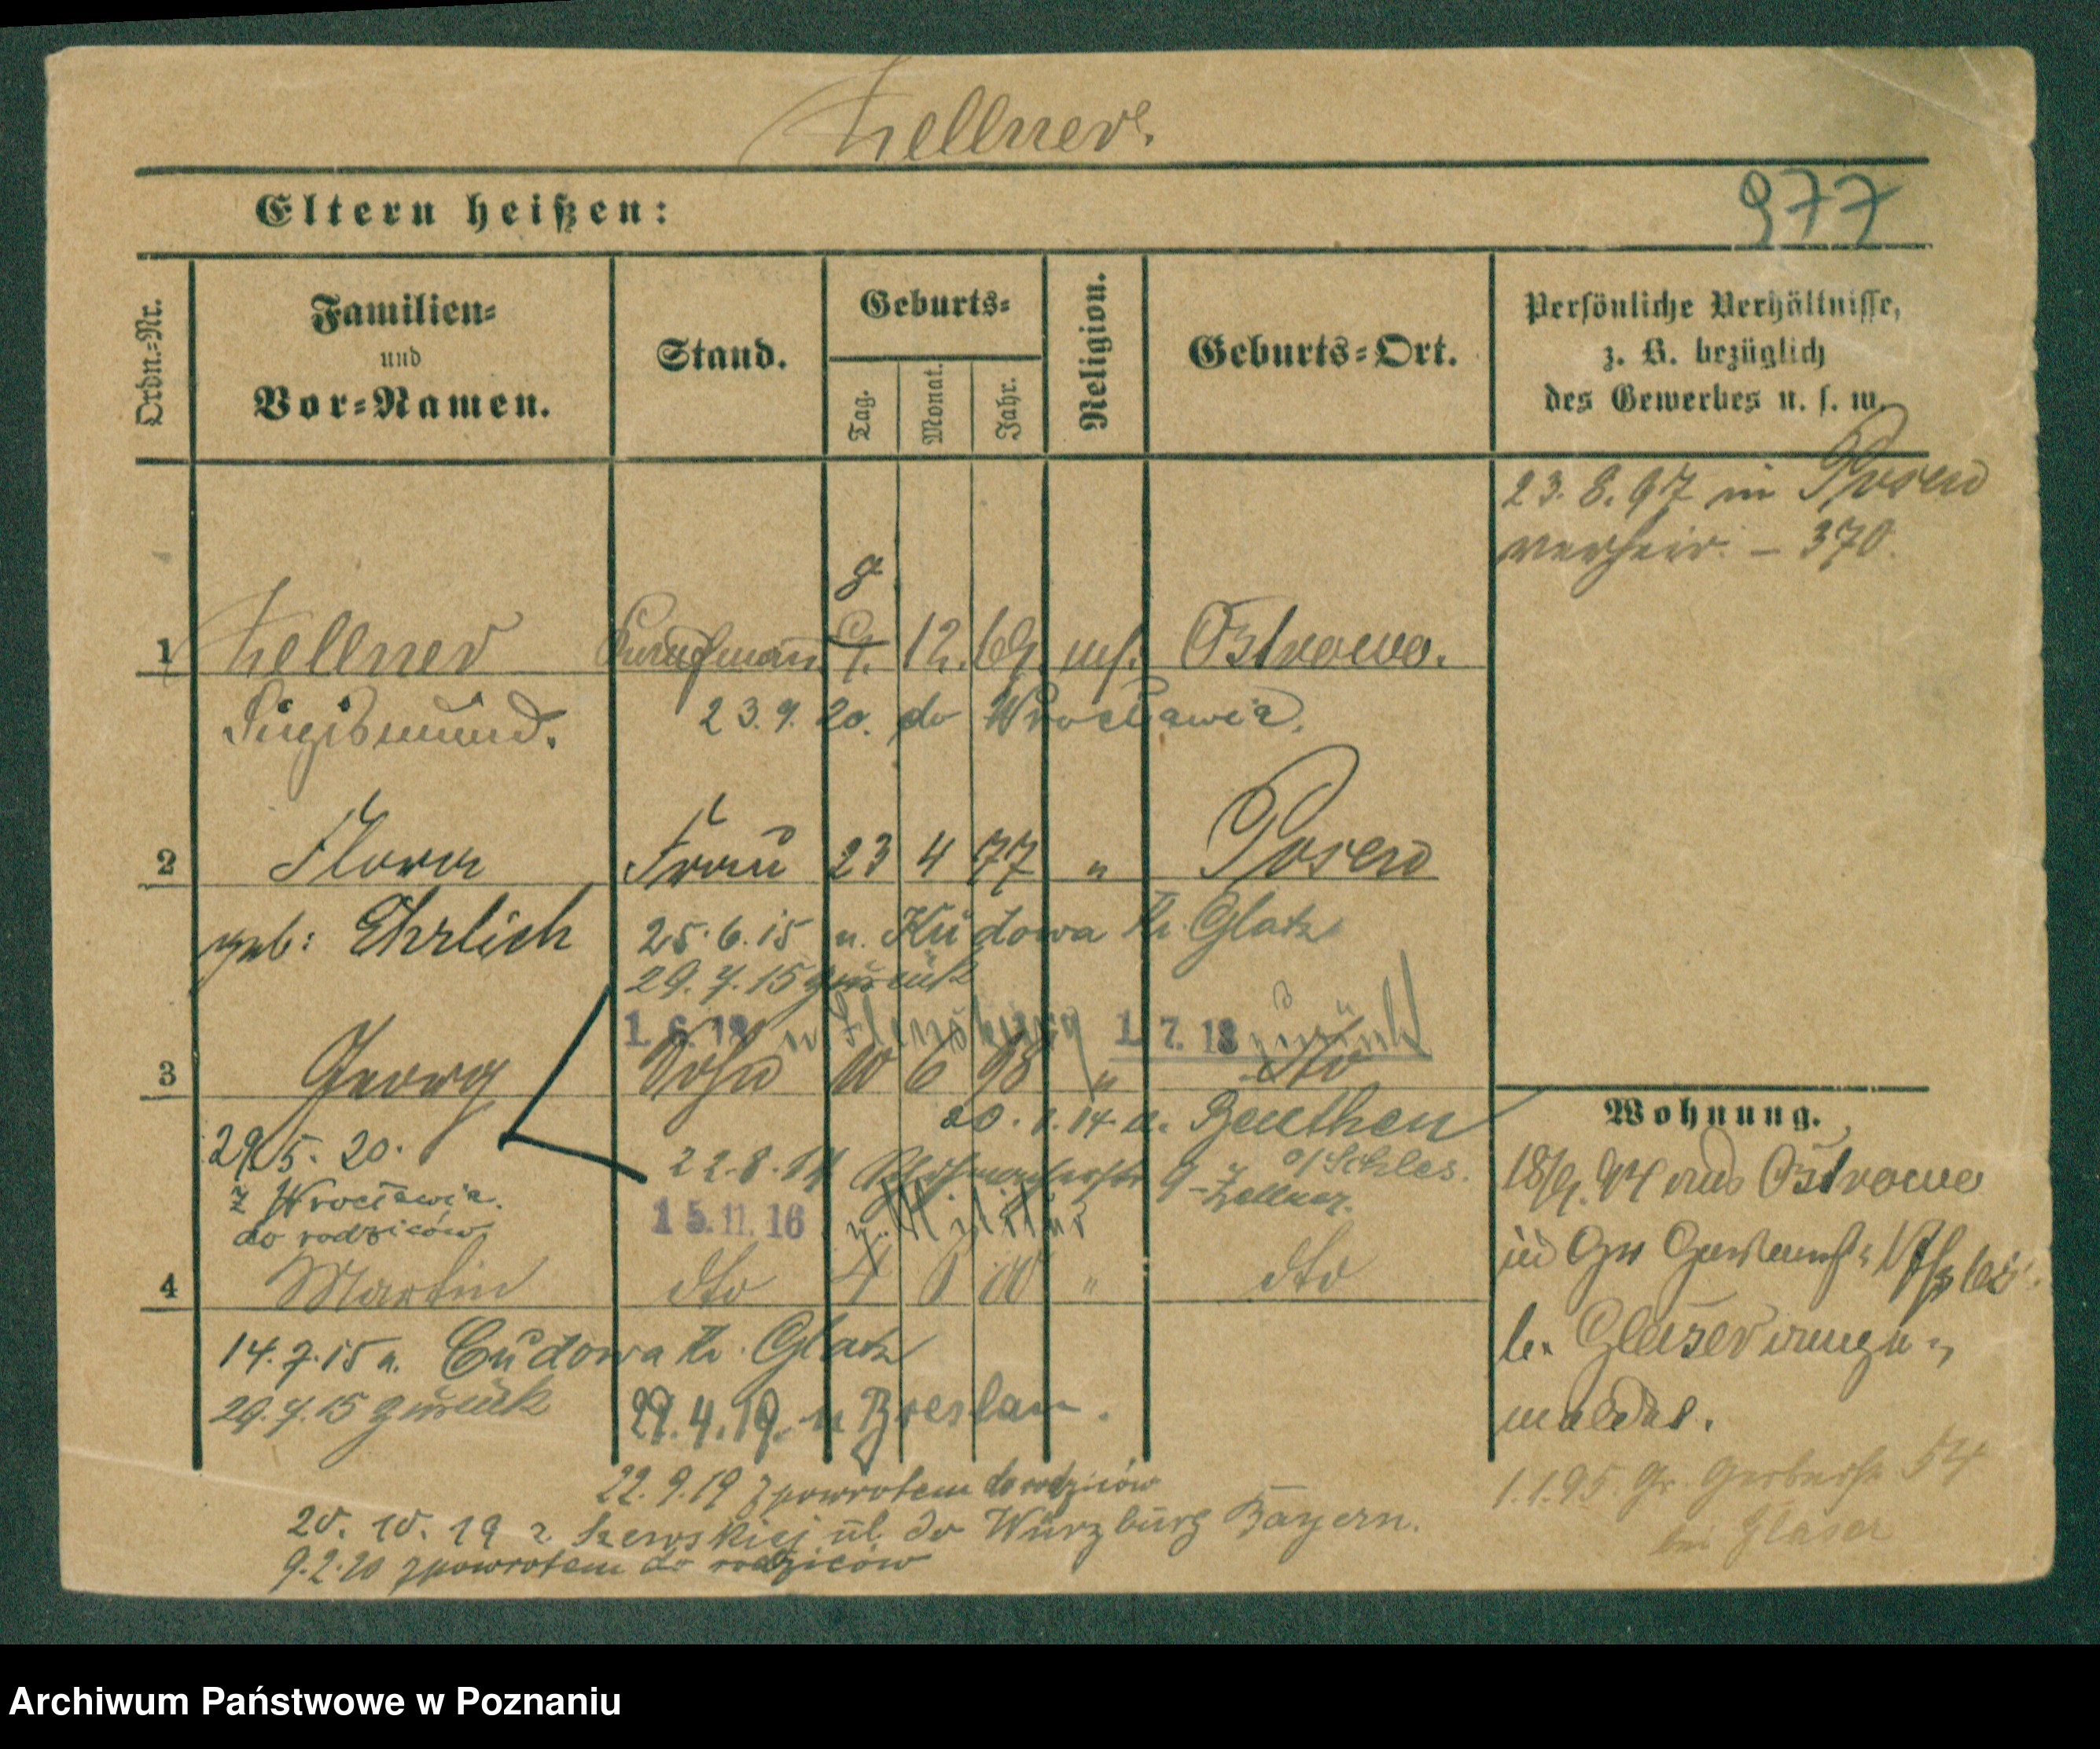 Zellner.
977
Eltern heißen:
Ordn.=Nr.
Familien=
und
Vor=Namen.
Stand.
Geburts=
Tag.
Monat.
Jahr.
Religion.
Geburts=Ort.
Persönliche Verhältnisse,
z. B. bezüglich
des Gewerbes u. s. w.
23. 8. 97 in Posen
verheir. – 370.
1 Zellner Kaufmann 12. 69. mos. Ostrowo.
Siegismund. 23. 9. 20. do Wrocławia.
2 Flora Frau 23 4 77 " Posen
geb: Ehrlich 25. 6. 15 n. Kudowa Kr. Glatz
29. 7. 15 zurück
1. 6. 18 n Flensburg 1. 7. 18 zurück
3 Georg Sohn 10 6 98 " dto
20. 1. 14 n. Beuthen
o/Schles.
29. 5. 20.
z Wrocławia.
do rodziców
22. 8. 14 9 – Zellner.
15. 11. 16 z. Militär
4 Martin dto 4 " dto
14. 7. 15 n. Cudowa Kr. Glatz
29. 7. 15 zurück
29. 4. 19. n Breslau.
22. 9. 19 zpowrotem do rodziców
20. 10. 19 z Szewskiej ul. do Würzburg Bayern.
9. 2. 20 zpowrotem do rodziców
Wohnung.
18/9. 94 aus Ostrowo
in Gr
b. Glaser
1. 1. 95. Gr. Gerberstr 54
bei Glaser
Archiwum Państwowe w Poznaniu